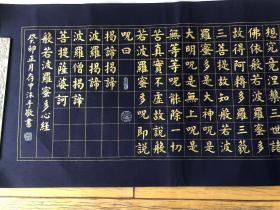 想究竟涅槃三世諸
佛依般若波羅蜜多
故得阿耨多羅三藐
三菩提故知般若波
羅蜜多是大神呪是
大明呪是無上呪是
無等等呪能除一切
苦真實不虛故說般
若波羅蜜多呪即說
呪曰
揭諦揭諦
波羅揭諦
波羅僧揭諦
菩提薩婆訶
般若波羅蜜多心經
癸卯正月存中沐手敬書